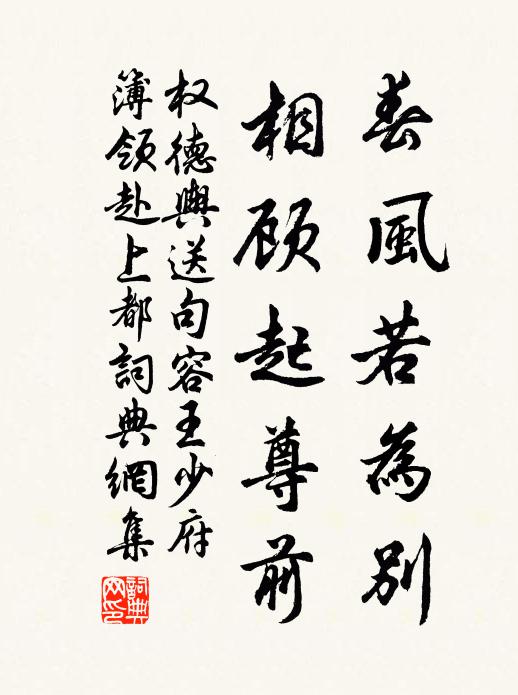 春風若為別
相顾起尊前
权德輿送句容王少府
簿领赴上都詞典網集
詞典網印